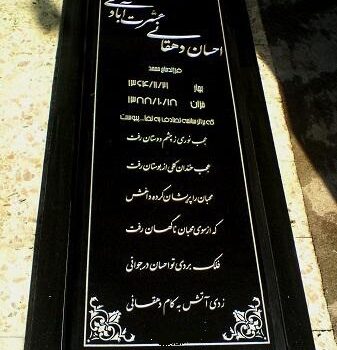 احسان دهقانی عشرت آبادی
فرزند محمد
بهار ۱۳۶۴/۱۱/۲۱
خزان ۱۳۸۸/۱۰/۱۸
که بر اثر سانحه تصادف به لقاء... پیوست
عجب نوری ز چشم دوستان رفت
عجب خندان گلی از بوستان رفت
محبان را پریشان کرده داغش
که از سوی محبان ناگهان رفت
فلک بردی تو احسان در جوانی
زدی آتش به کام دهقانی